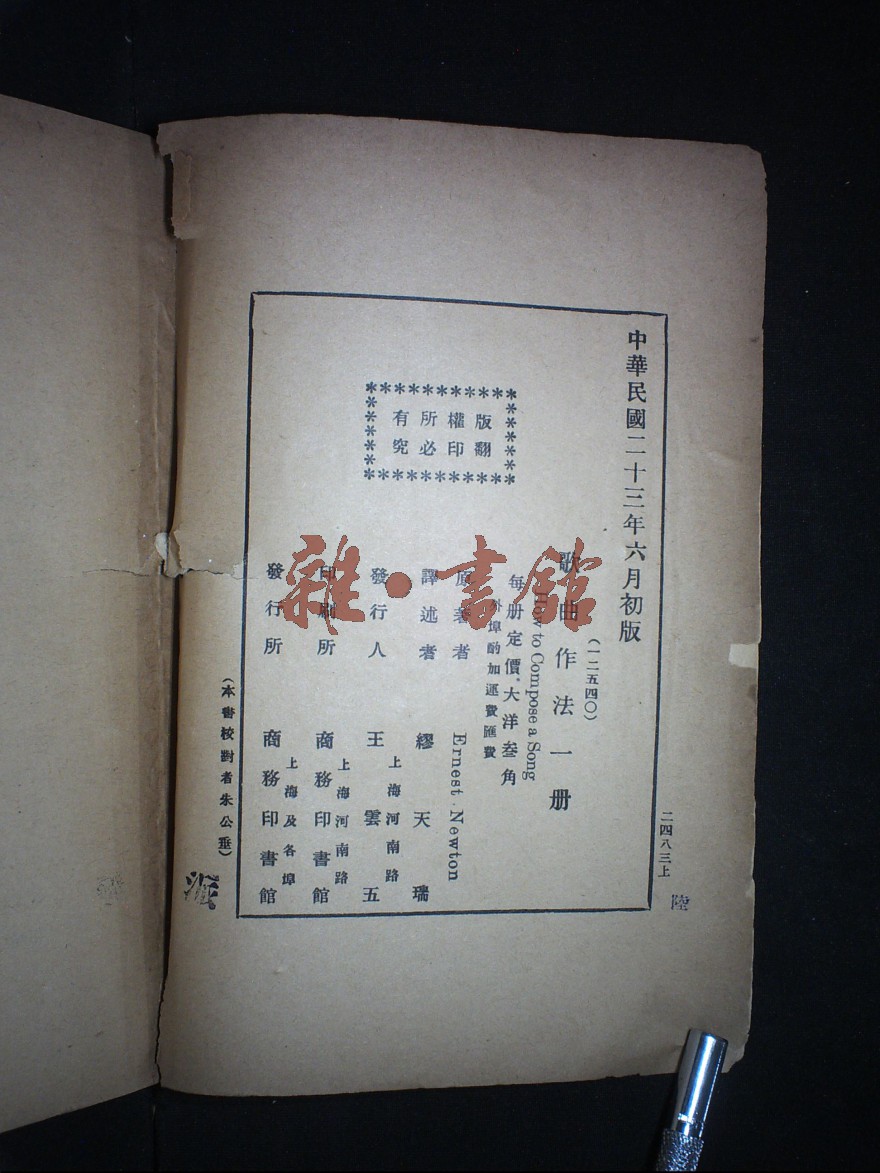 中華民國二十三年六月初版
二四八三上
陸
(一二五四〇)
歌曲作法一册
How to Compose a Song
每册定價大洋叁角
外埠酌加運費匯費
版權所有
翻印必究
原著者 Ernest Newton
譯述者 繆天瑞
發行人 王雲五
上海河南路
印刷所 商務印書館
上海河南路
發行所 商務印書館
上海及各埠
(本書校對者朱公垂)
雜·書館